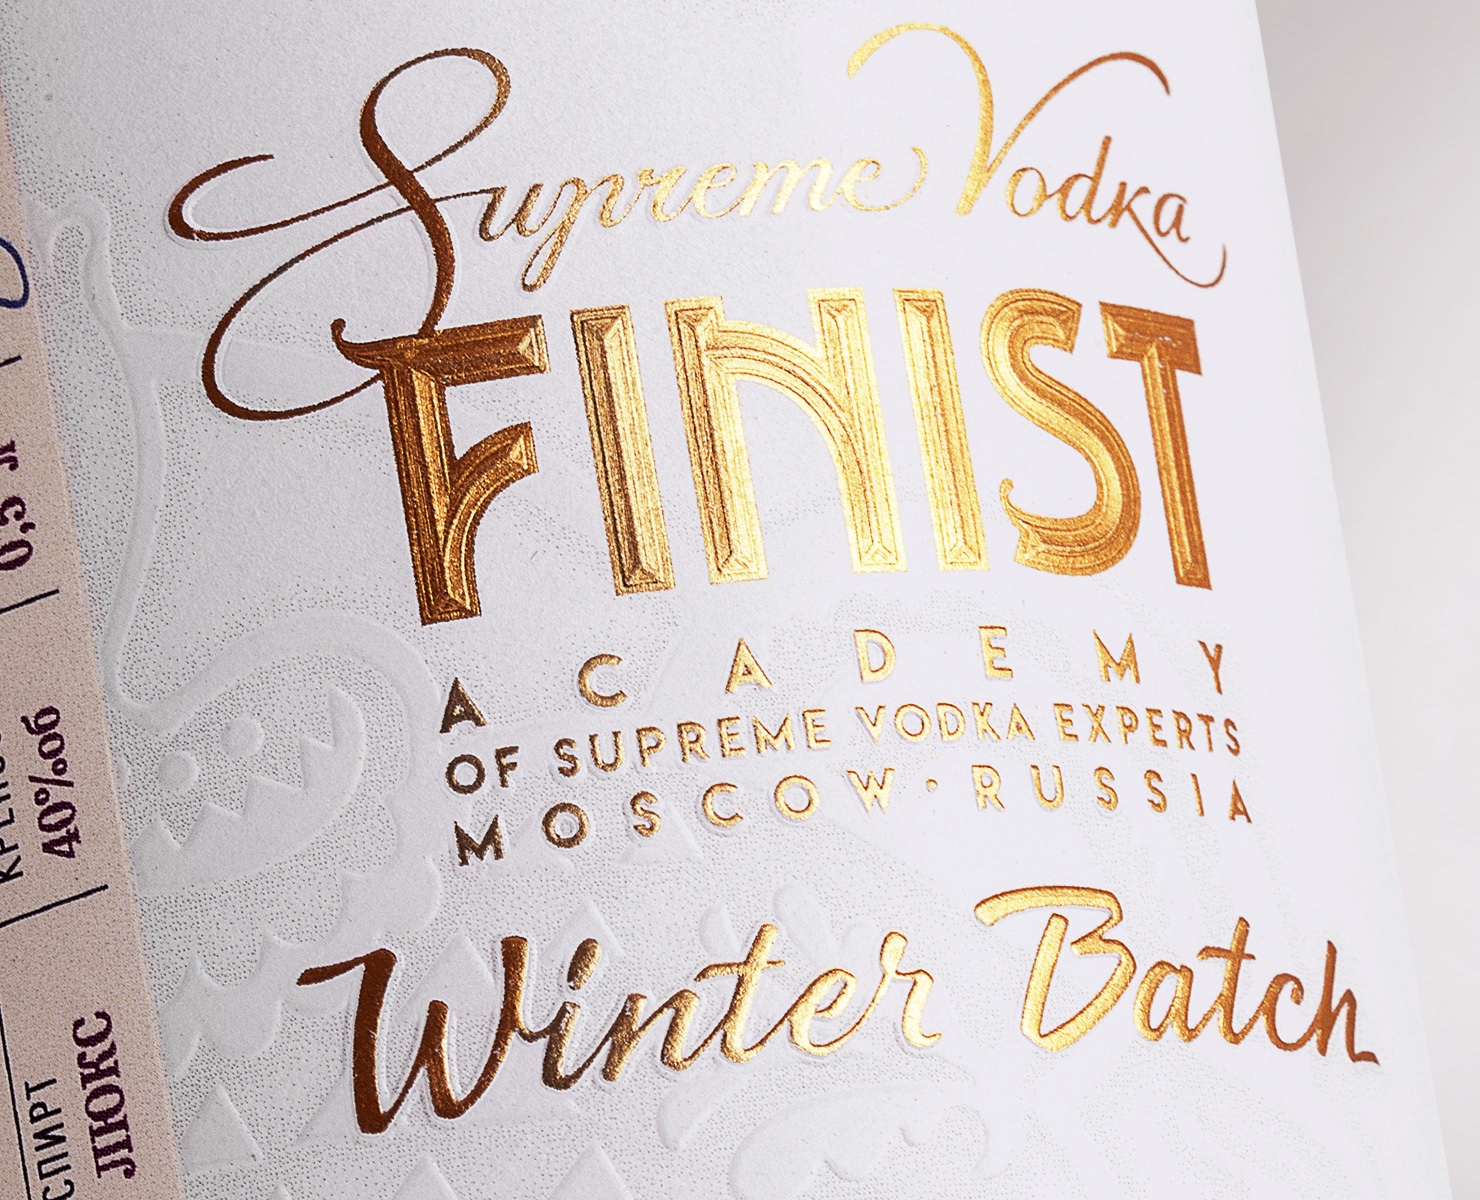 Supreme Vodka
FINIST
ACADEMY
OF SUPREME VODKA EXPERTS
MOSCOW · RUSSIA
Winter Batch
0,5 л
40%об
СПИРТ
ЛЮКС